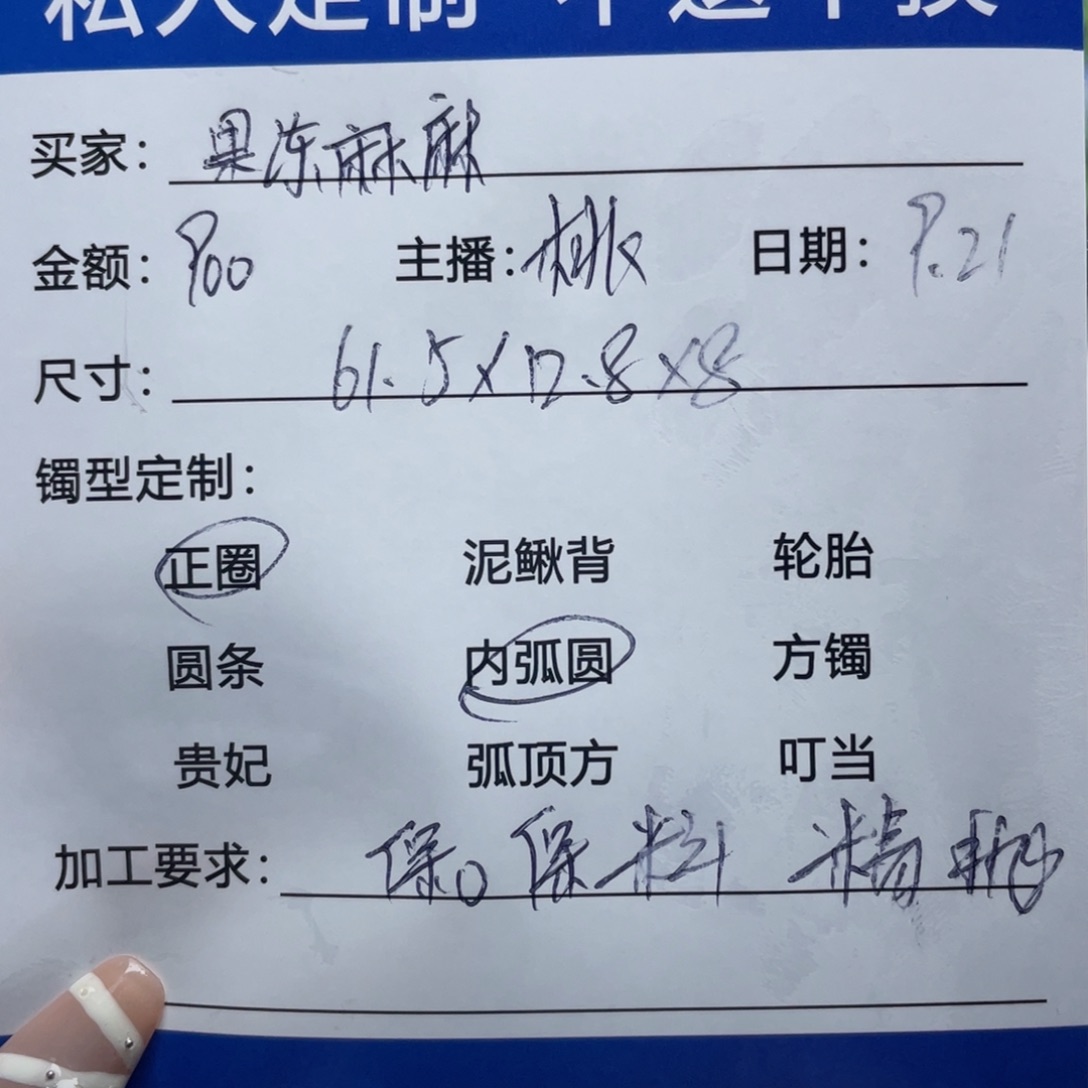 私人定制 不退不换
买家：果冻麻麻
金额：800 主播：桃 日期：8.21
尺寸：61.5×12.8×8
镯型定制：
正圈 泥鳅背 轮胎
圆条 内弧圆 方镯
贵妃 弧顶方 叮当
加工要求：保口保料 精抛